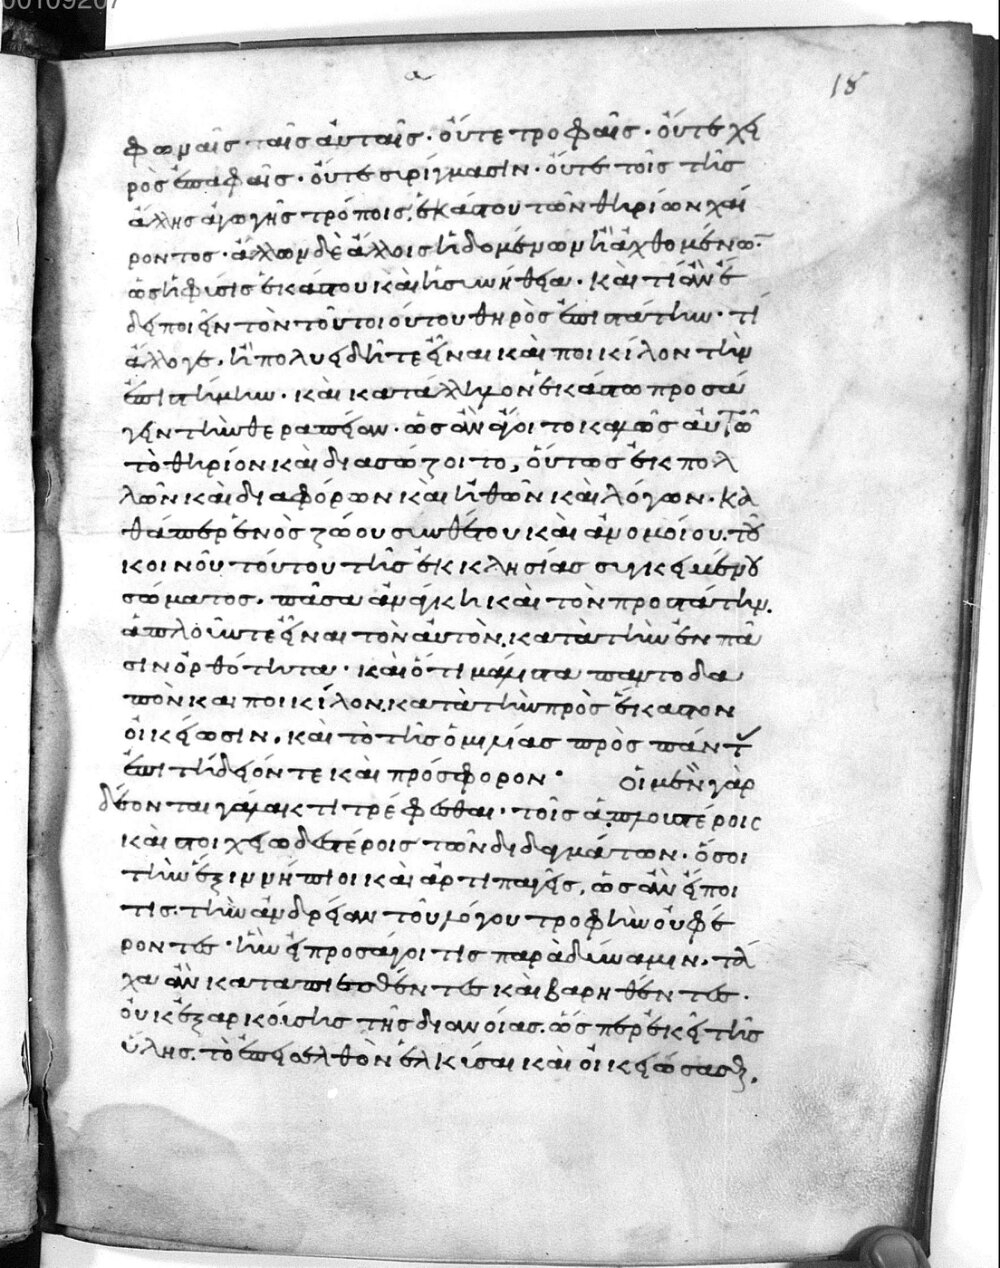 00109207
α
18
φωναῖς ταῖς αὐταῖς· οὔτε τροφαῖς· οὔτε χει
ρὸς ἐπαφαῖς· οὔτε συρίγμασιν· οὔτε τοῖς τῆς
ἄλλης ἀγωγῆς τρόποις, ἑκάστου τῶν θηρίων χαί
ροντος· ἄλλων δὲ ἄλλοις ἡδομένων ἢ ἀχθομένω̅·
ὡς ἡ φύσις ἑκάστου καὶ ἡ συνήθεια· καὶ τί ἂν ἔ
δει ποιεῖν τὸν τοῦ τοιούτου θηρὸς ἐπιστάτην· τί
ἄλλό γε, ἢ πολυειδῆ τε εἶναι καὶ ποικίλον τὴν
ἐπιστήμην· καὶ κατάλληλον ἑκάστω προσά
γειν τὴν θεραπείαν· ὡς ἂν ἄγοιτο καλῶς αὐτῶ
τὸ θηρίον καὶ διασώζοιτο, οὕτως ἐκ πολ
λῶν καὶ διαφόρων καὶ ἠθῶν καὶ λόγων· κα
θάπερ ἑνὸς ζώου συνθέτου καὶ ἀνομοίου· τοῦ
κοινοῦ τούτου τῆς ἐκκλησίας συγκειμένου
σώματος· πᾶσα ἀνάγκη καὶ τὸν προστάτην,
ἁπλοῦν τε εἶναι τὸν αὐτὸν, κατὰ τὴν ἐν πᾶ
σιν ὀρθότητα· καὶ ὅτι μάλιστα παντοδα
πὸν καὶ ποικίλον, κατὰ τὴν πρὸς ἕκαστον
οἰκείωσιν, καὶ τὸ τῆς ὁμιλίας πρὸς πάντας
ἐπιτήδειόν τε καὶ πρόσφορον· οἱ μὲν γὰρ
δέονται γάλακτι τρέφεσθαι· τοῖς ἁπλουστέροις
καὶ στοιχειωδεστέροις τῶν διδαγμάτων· ὅσοι
τὴν ἕξιν νήπιοι καὶ ἀρτιπαγεῖς, ὡς ἂν εἴποι
τις· τὴν ἀνδρείαν τοῦ λόγου τροφὴν οὐ φέ
ροντες· ἣν εἰ προσάγοι τις παρὰ δύναμιν, τά
χα ἂν καταπιεσθέντες καὶ βαρηθέντες·
οὐκ ἐξαρκούσης τῆς διανοίας, ὥσπερ ἐκεῖ τῆς
ὕλης, τὸ ἐπεισελθὸν ἑλκύσαι καὶ οἰκειώσασθαι,